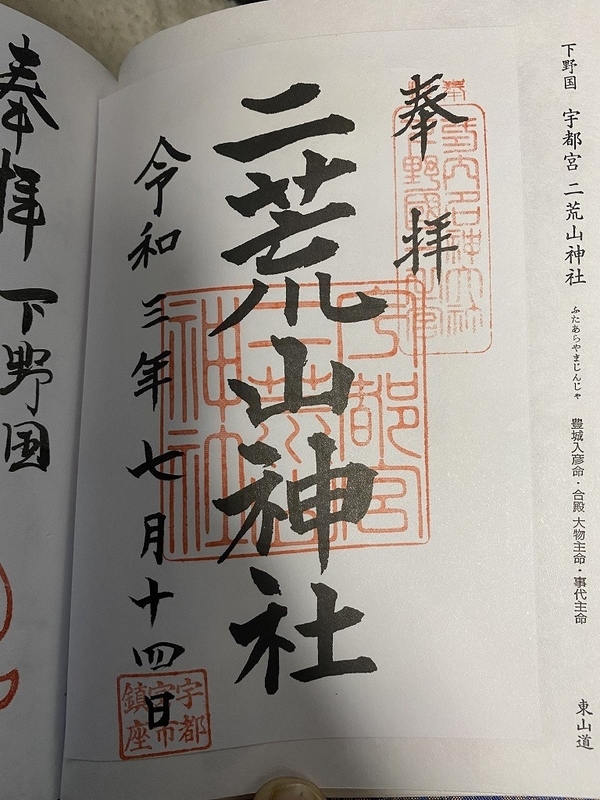 下野国 宇都宮 二荒山神社 ふたあらやまじんじゃ 豊城入彦命・合殿 大物主命・事代主命 東山道
奉拝
二荒山神社
令和三年七月十四日
宇都宮
二荒山
神社
宇都
宮市
鎮座
奉拝 下野国